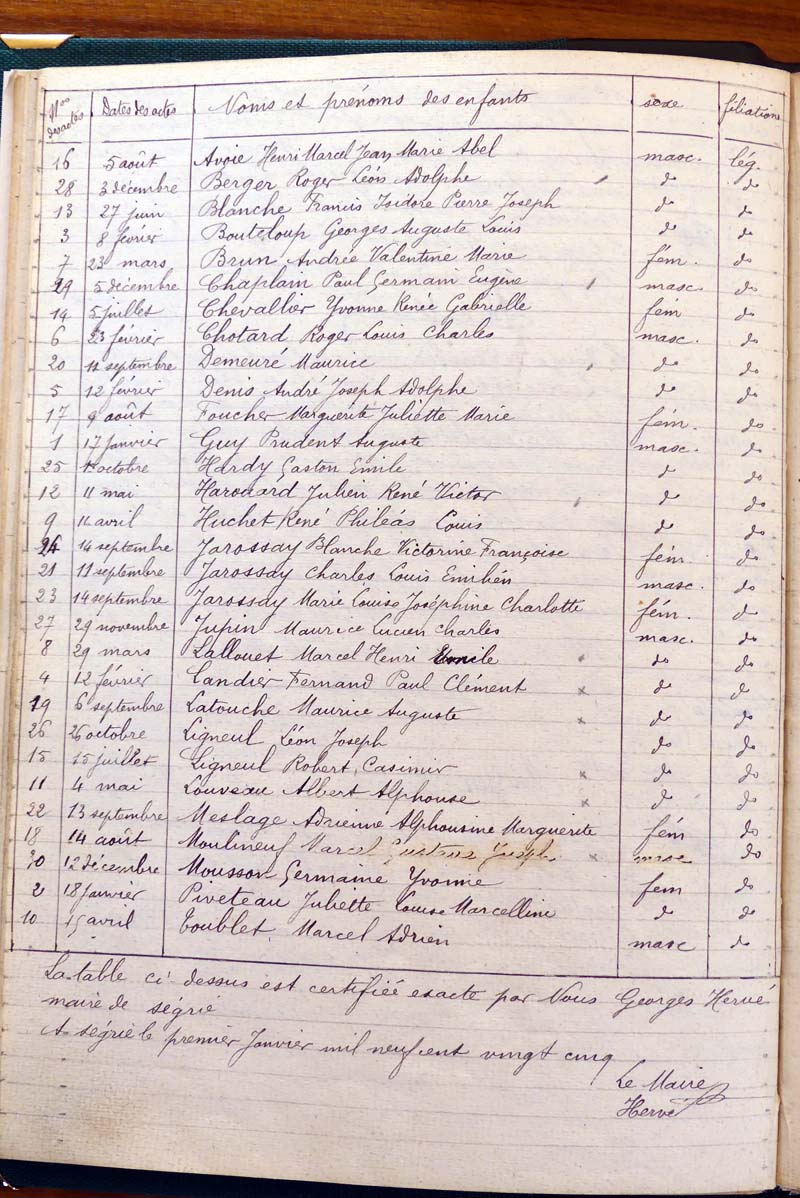 Nos des actes Dates des actes Noms et prénoms des enfants sexe filiation
16 5 août Avoie Henri Marcel Jean Marie Abel masc. lég.
28 3 décembre Berger Roger Léon Adolphe do do
13 27 juin Blanche Francis Isidore Pierre Joseph do do
3 8 février Bouteloup Georges Auguste Louis do do
7 23 mars Brun Andrée Valentine Marie fém. do
29 5 décembre Chaplain Paul Germain Eugène masc. do
14 5 juillet Chevallier Yvonne Renée Gabrielle fém do
6 23 février Chotard Roger Louis Charles masc. do
20 11 septembre Demeuré Maurice do do
5 12 février Denis André Joseph Adolphe do do
17 9 août Foucher Marguerite Juliette Marie fém. do
1 17 janvier Guy Prudent Auguste masc. do
25 octobre Hardy Gaston Emile do do
12 11 mai Harouard Julien René Victor do do
9 avril Huchet René Philéas Louis do do
24 14 septembre Jarossay Blanche Victorine Françoise fém do
21 11 septembre Jarossay Charles Louis Emilien masc. do
23 14 septembre Jarossay Marie Louise Joséphine Charlotte fém. do
27 29 novembre Jupin Maurice Lucien Charles masc. do
8 29 mars Lallouet Marcel Henri Emile do do
4 12 février Landier Fernand Paul Clément do do
19 6 septembre Latouche Maurice Auguste do do
26 26 octobre Ligneul Léon Joseph do do
15 15 juillet Ligneul Robert Casimir do do
11 4 mai Louveau Albert Alphonse do do
22 13 septembre Meslage Adrienne Alphonsine Marguerite fém do
18 14 août Moulineuf Marcel Gustave Joseph masc do
30 12 décembre Mousson Germaine Yvonne fem do
2 18 Janvier Piveteau Juliette Louise Marcelline do do
10 15 avril Toublet Marcel Adrien masc do
La table ci-dessus est certifiée exacte par Nous Georges Hervé
maire de ségrie
A ségrie le premier Janvier mil neuf cent vingt cinq
Le Maire
Hervé